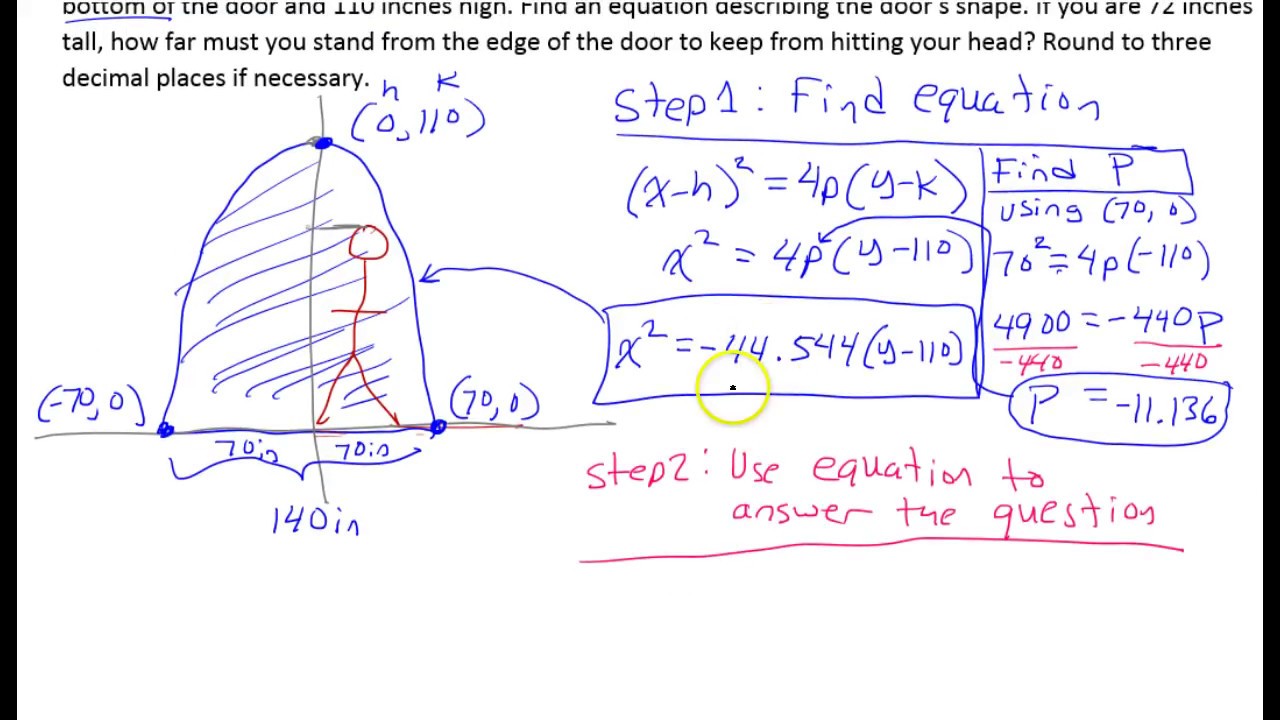 bottom of the door and 110 inches high. Find an equation describing the door's shape. If you are 72 inches
tall, how far must you stand from the edge of the door to keep from hitting your head? Round to three
decimal places if necessary.
h k
(0,110)
Step1: Find equation
(x-h)² = 4p(y-k)
x² = 4p(y-110)
x² = -44.544(y-110)
Find P
using (70, 0)
70² = 4p(-110)
4900 = -440P
-440 -440
P = -11.136
(-70, 0)
(70, 0)
70in 70in
140in
step2: Use equation to
answer the question